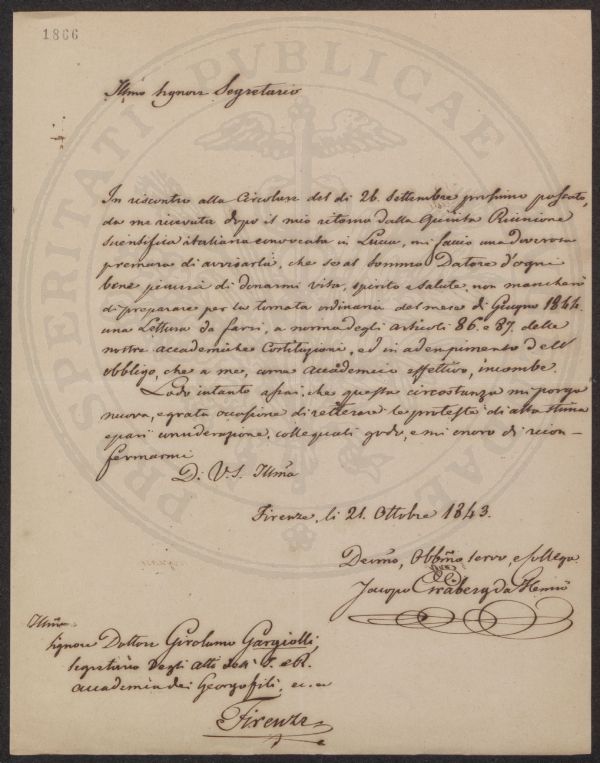 1866
PROSPERITATI PUBLICAE
Illmo Signore Segretario
In riscontro alla Circolare del dì 26. Settembre prossimo passato,
da me ricevuta dopo il mio ritorno dalla Quinta Riunione
Scientifica italiana convocata in Lucca, mi faccio una doverosa
premura di avvisarla, che se al Sommo Datore d'ogni
bene piacerà di donarmi vita, spirito e salute, non mancherò
di preparare per la tornata ordinaria del mese di Giugno 1844.
una Lettura da farsi, a norma degli articoli 86. e 87. delle
nostre accademiche Costituzioni, ed in adempimento dell'
obbligo, che a me, come accademico effettivo, incombe.
Lodo intanto assai, che questa circostanza mi porga
nuova, e grata occasione di reiterare le proteste di alta stima
e pari considerazione, colle quali godo, e mi onoro di ricon-
fermarmi
Di V.S. Illma
Firenze, li 21. Ottobre 1843.
Devmo, Obbmo servo, e collega
Jacopo Gråberg da Hemsö
Illmo
Signore Dottore Girolamo Gargiolli
Segretario degli Atti I. e R.
accademia dei Georgofili,
Firenze